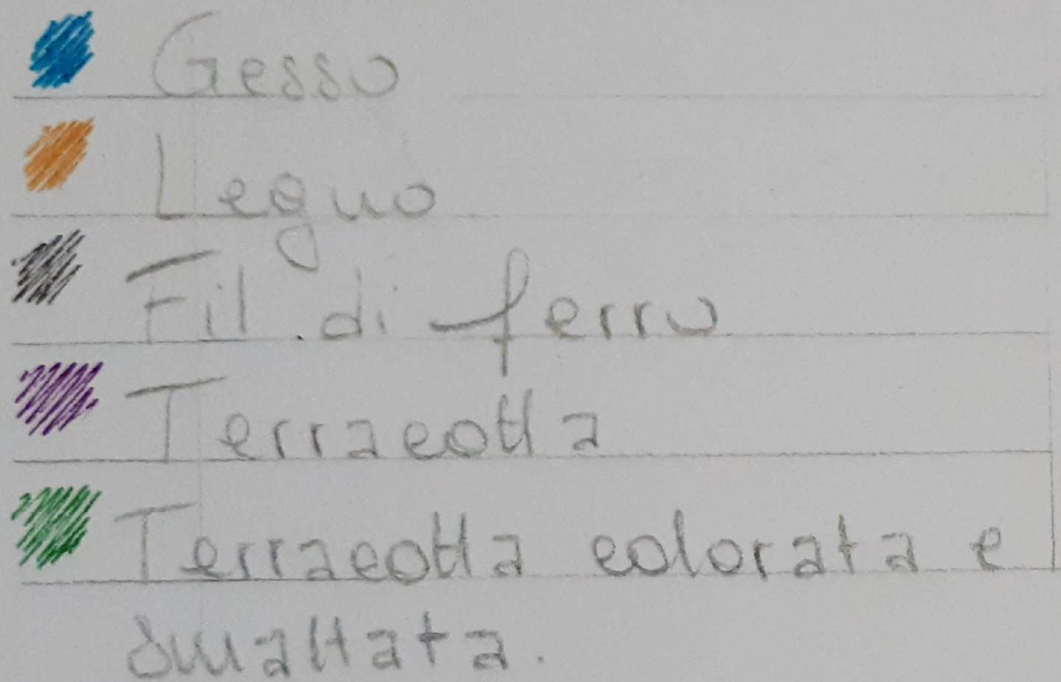 Gesso
Legno
Fil. di ferro
Terracotta
Terracotta colorata e
smaltata.